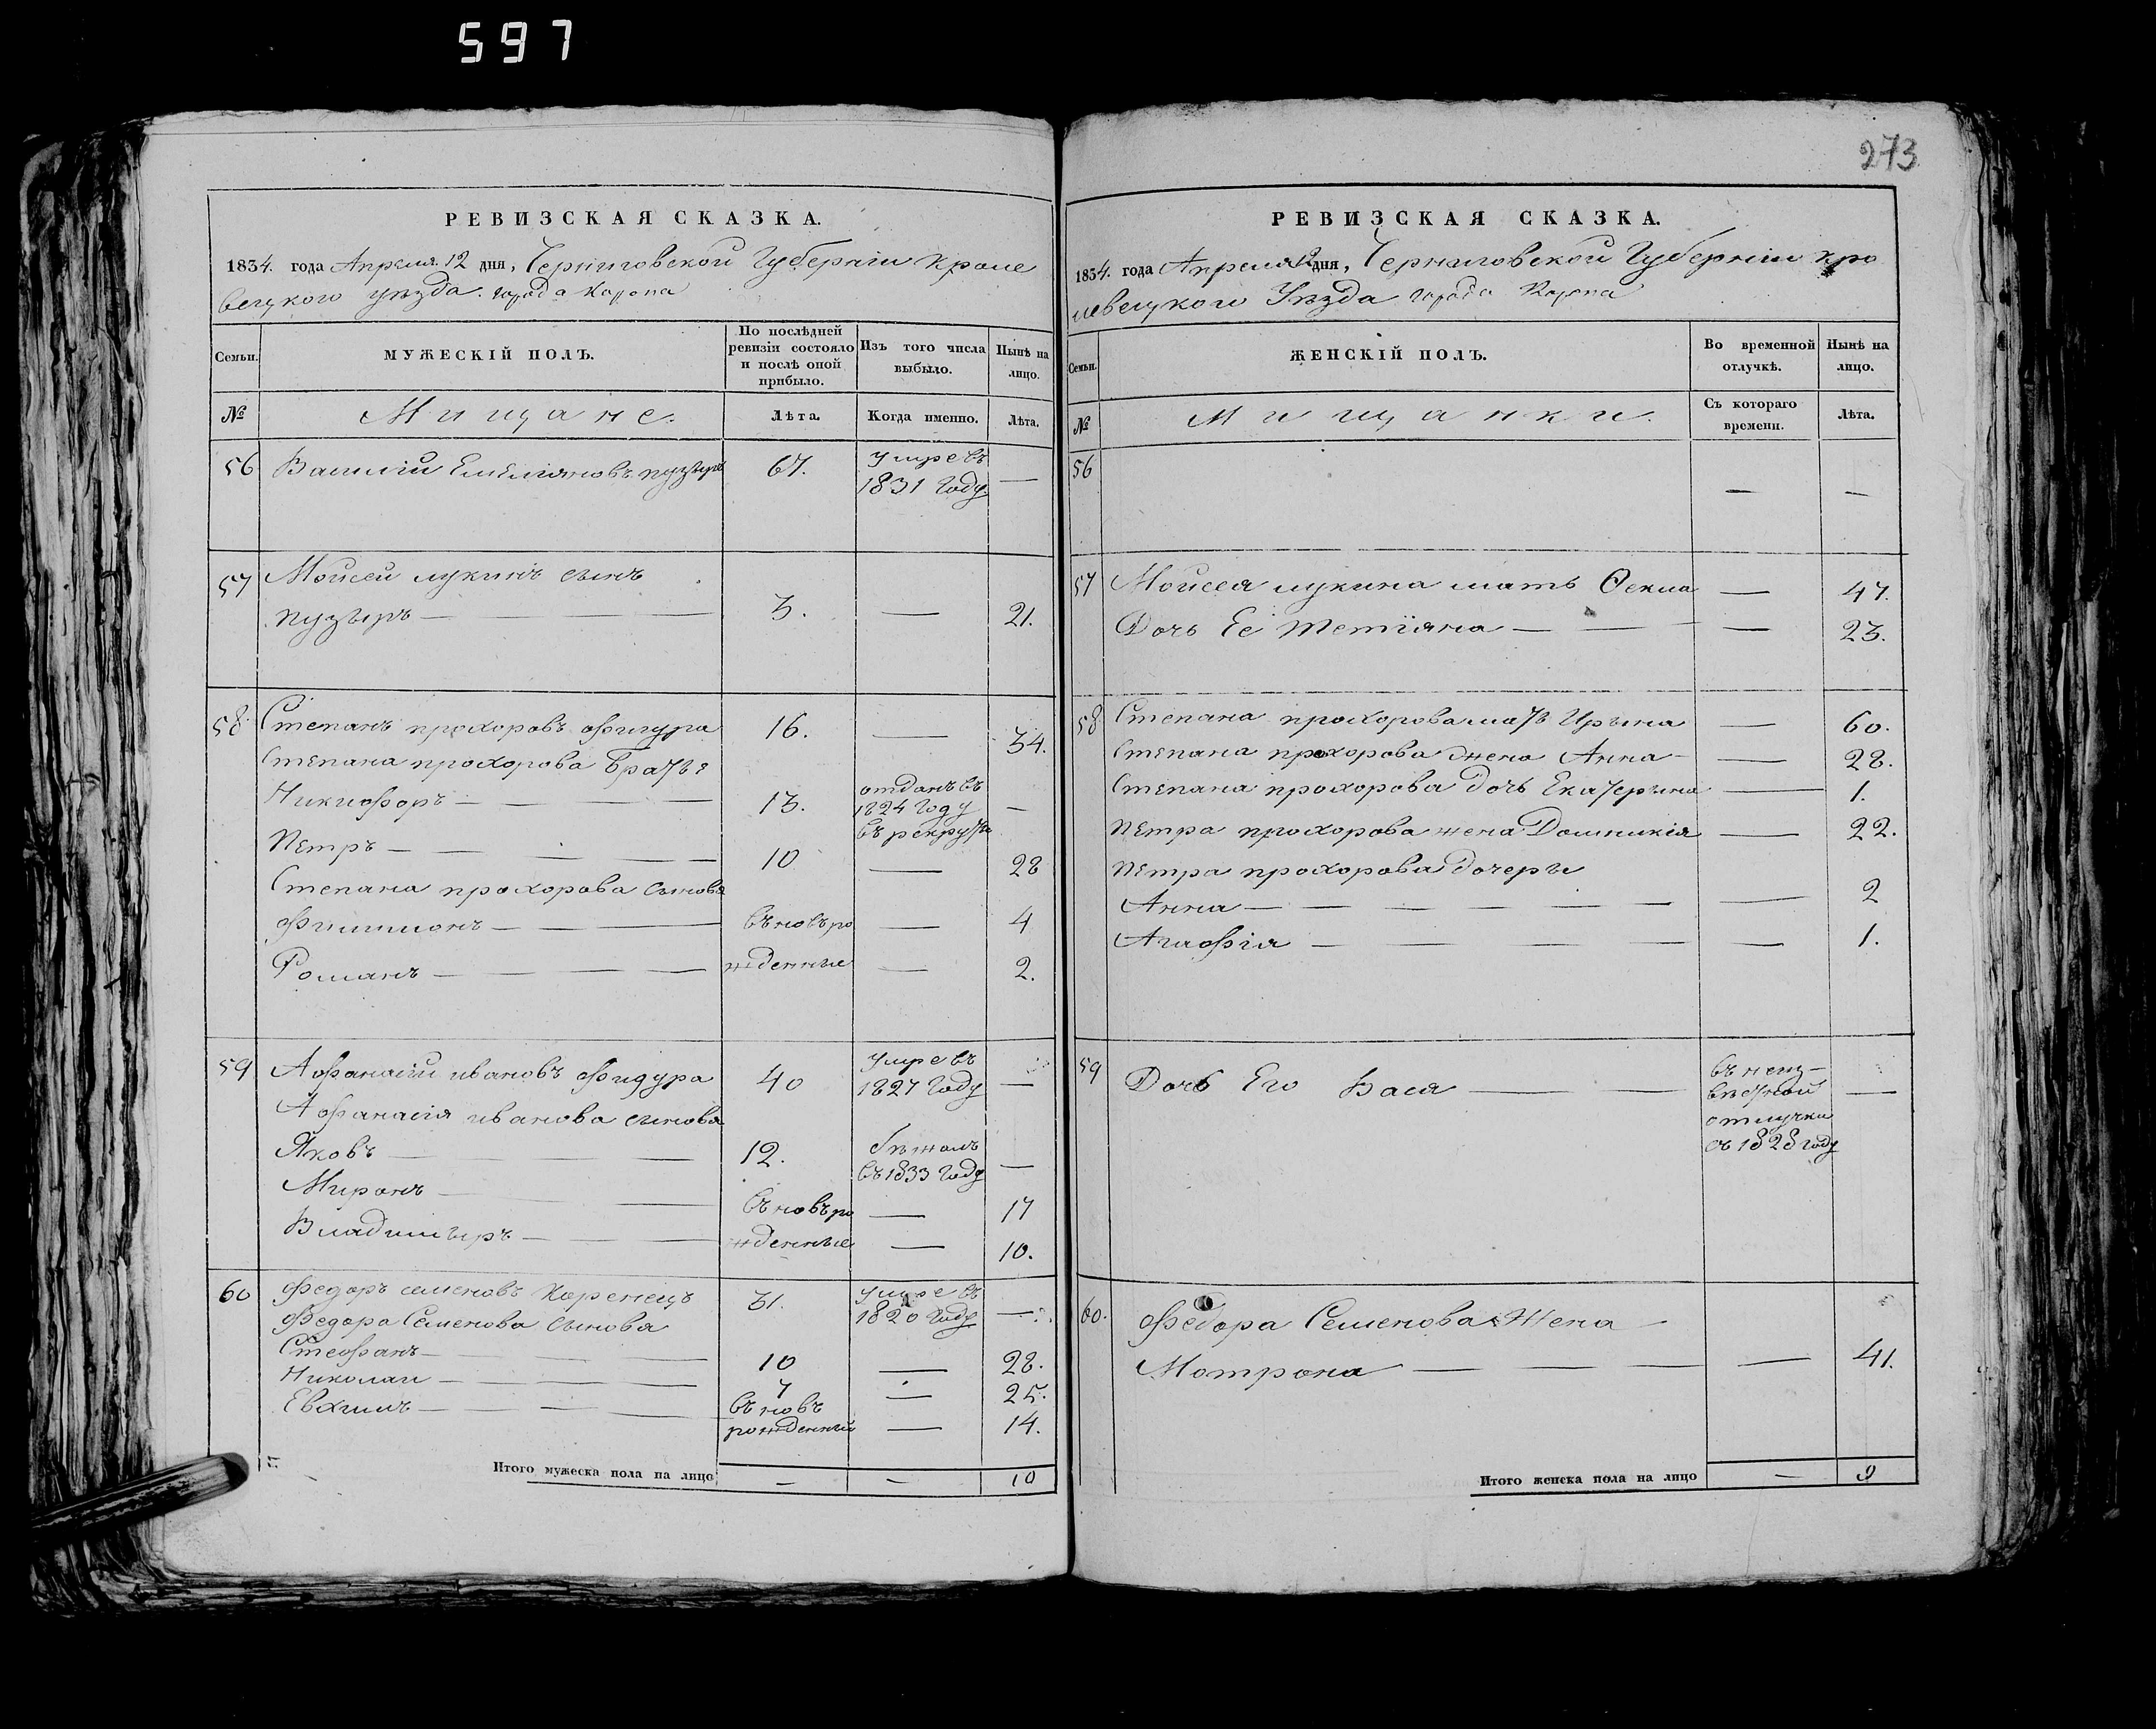 597
273
РЕВИЗСКАЯ СКАЗКА.
1834. года Апреля 12 дня, Черниговской Губернии Кроле
вецкого уезда. города Коропа
Семьи. МУЖЕСКІЙ ПОЛЪ. По послѣдней ревизіи состояло и послѣ оной прибыло. Изъ того числа выбыло. Нынѣ на лицо.
№ Мищане. Лѣта. Когда именно. Лѣта.
56 Василий Емелияновъ пузыръ 67. умре въ 1831 году —
57 Мойсей лукинъ сынъ
пузыръ — 3. — 21.
58 Степанъ прохоровъ фигура 16. — 34.
Степана прохорова братья
Никифоръ — 13. отданъ въ 1824 году въ рекруты —
Петръ — 10 — 28
Степана прохорова сыновя
Филимонъ — въновъро — 4
Романъ — жденные — 2.
59 Афанасий ивановъ фигура 40 умре въ 1827 году —
Афанасия иванова сыновя
Яковъ — 12. бежалъ въ 1833 году —
Миронъ — въновъро — 17
Владимыръ — жденные — 10.
60 Федоръ семеновъ Коренецъ 31. умре въ 1820 году —
Федора Семенова сыновя
Стефанъ — 10 — 28.
Николай — 7 — 25.
Евхимъ — въновъ рожденный — 14.
Итого мужеска пола на лицо — — 10
РЕВИЗСКАЯ СКАЗКА.
1834. года Апреля 12 дня, Черниговской Губернии Кро
левецкого Уезда города Коропа
Семьи. ЖЕНСКІЙ ПОЛЪ. Во временной отлучкѣ. Нынѣ на лицо.
№ Мищанки. Съ котораго времени. Лѣта.
56 — —
57 Мойсея лукина мать Ѳекла — 47.
Дочь Ее Тетїяна — — 23.
58 Степана прохорова мать Ирына — 60.
Степана прохорова жена Анна — 28.
Степана прохорова дочь Екатерына — 1.
Петра прохорова жена Домникія — 22.
Петра прохорова дочеры
Анна — — 2
Агафія — — 1.
59 Дочь Его Вася — въ неиз-
вестной
отлучки
съ 1828 году —
60. Федора Семенова Жена —
Мотрона — — 41.
Итого женска пола на лицо — 9